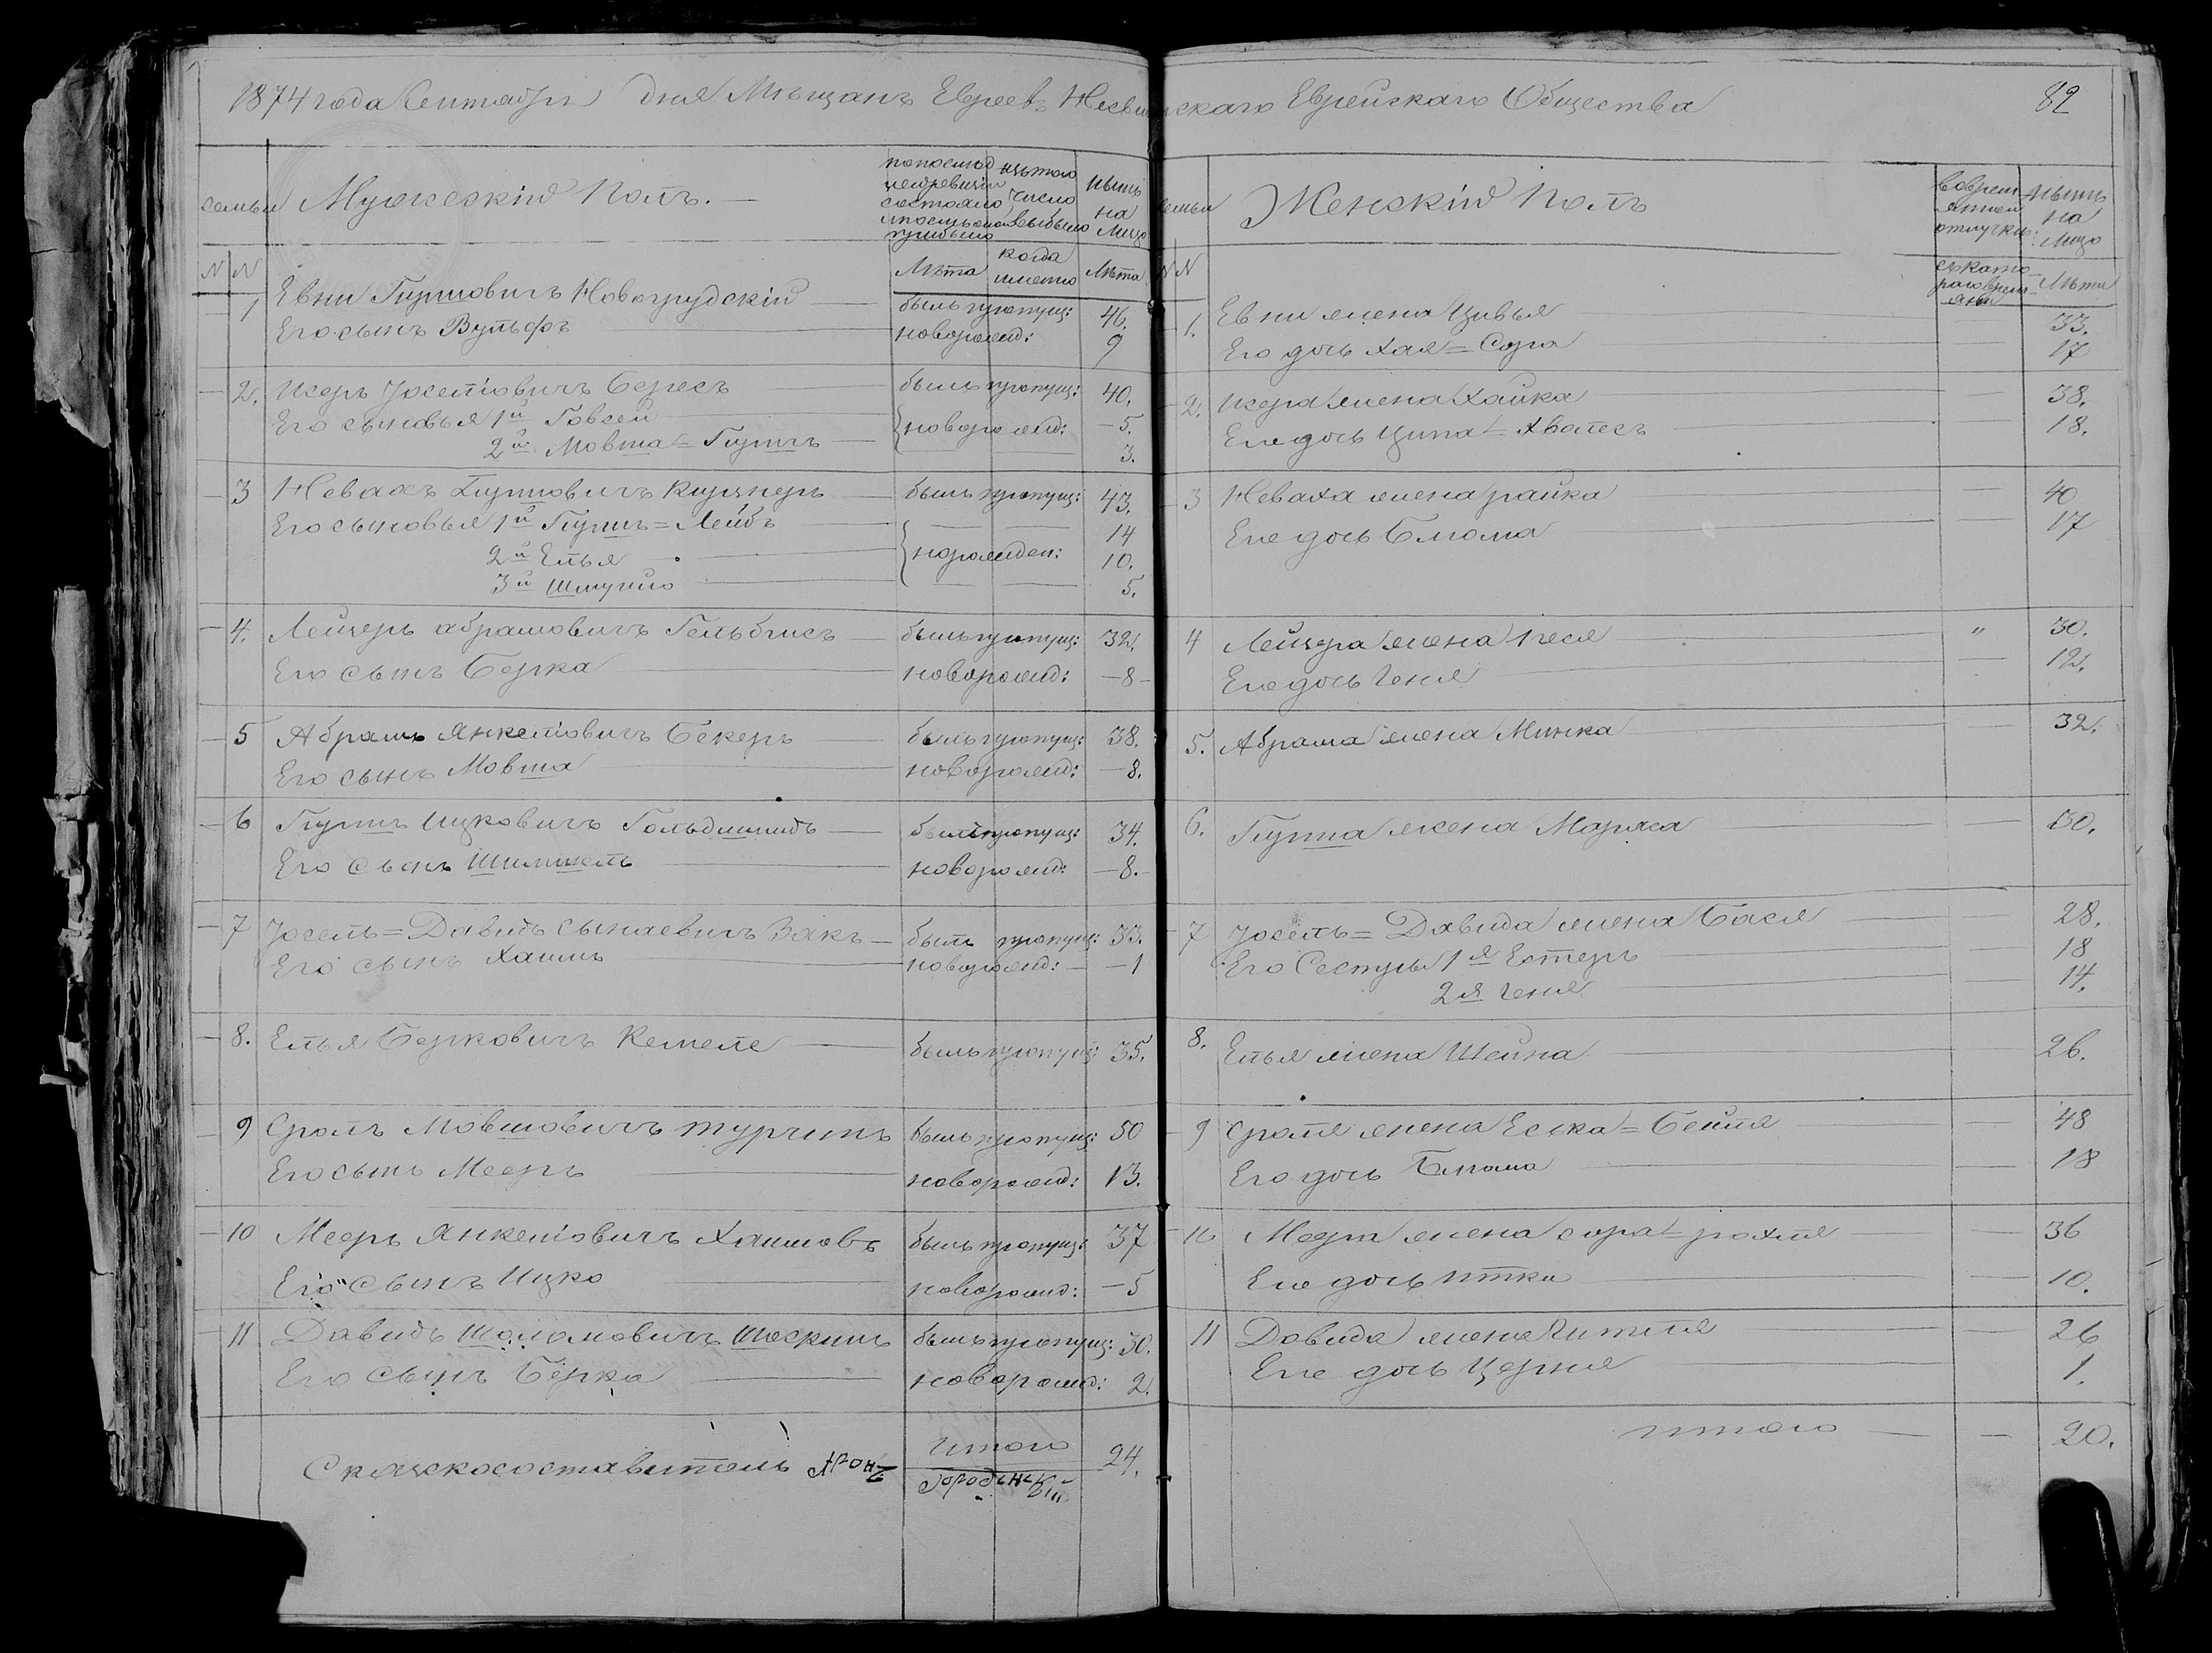 1874 года Сентября дня Мѣщанъ Евреевъ Несвижскаго Еврейскаго Общества
82
семьи Мужескій Полъ.
по послѣд
ней ревизіи
состояло
и послѣ оной
прибыло
изъ того
числа
выбыло
нынѣ
на
Лицо
№ №
Лѣта
когда
именно
Лѣта
1 Евни Гиршовичъ Новогрудскій былъ пропущ: 46.
Его сынъ Вульфъ новорожд: 9
2. Исеръ Іоселіовичъ Бересъ былъ пропущ: 40.
Его сыновья 1й Говсей новорожд: 5.
2й Мовша=Гиршъ 3.
3 Невахъ Гиршовичъ Киржнеръ былъ пропущ: 43.
Его сыновья 1й Гиршъ=Лейбъ 14
2й Елья нарожден: 10.
3й Шмуйло 5.
4. Лейзеръ Абрамовичъ былъ пропущ: 32.
Его сынъ Берка новорожд: 8
5 Абрамъ Янкеліовичъ Бекеръ былъ пропущ: 38.
Его сынъ Мовша новорожд: 8.
6 Гиршъ Ицковичъ Гольдшмидъ былъ пропущ: 34.
Его сынъ Шимшель новорожд: 8.
7 Іосель=Давидъ Сынаевичъ Закъ былъ пропущ: 33.
Его сынъ Хаимъ новорожд: 1
8. Елья Берковичъ Кемеле былъ пропущ: 35.
9 Сроль Мовшовичъ Турчинъ былъ пропущ: 50
Его сынъ Мееръ новорожд: 13.
10 Мееръ Янкеліовичъ Хаимовъ былъ пропущ: 37
Его сынъ Ицко новорожд: 5
11 Давидъ Шоломовичъ Шоскинъ былъ пропущ: 30.
Его сынъ Берка новорожд: 2.
Итого 24.
Сказкосоставитель Аронъ
семьи Женскій Полъ
Во врем
янной
отлучкѣ:
нынѣ
на
Лицо
№ №
съ кото
раго врем
яни
Лѣта
1. Евни жена Цивья 33.
Его дочь Хая=Сора 17
2. Исера жена Хайка 38.
Его дочь Ципа= 18.
3 Неваха жена Райка 40
Его дочь Блюма 17
4 Лейзера жена Песя " 30.
Его дочь Геня 12.
5. Абрама жена Минка 32.
6. Гирша жена Маряса 30.
7 Іосель=Давида жена Бася 28.
Его Сестры 1я Естеръ 18
2я Геня 14.
8. Елья жена Шейна 26.
9 Сроля жена Еска=Бейля 48
Его дочь Блюма 18
10 Меера жена Сора=Рохля 36
Его дочь Итка 10.
11 Давида жена Гитля 26
Его дочь Церня 1.
Итого 20.